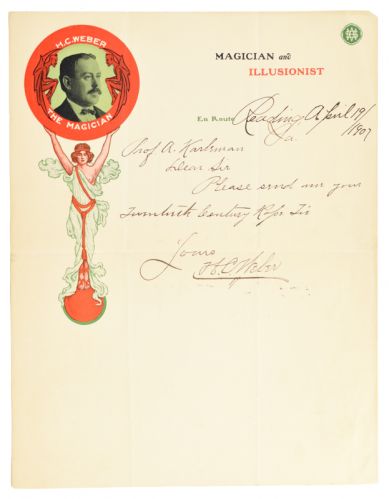 H.C. WEBER
THE MAGICIAN
MAGICIAN and
ILLUSIONIST
En Route Reading April 19/
Pa. 1907
Prof A. Karlsman
Dear Sir
Please send me your
Twentieth Century Rope Tie
Yours
H.C. Weber